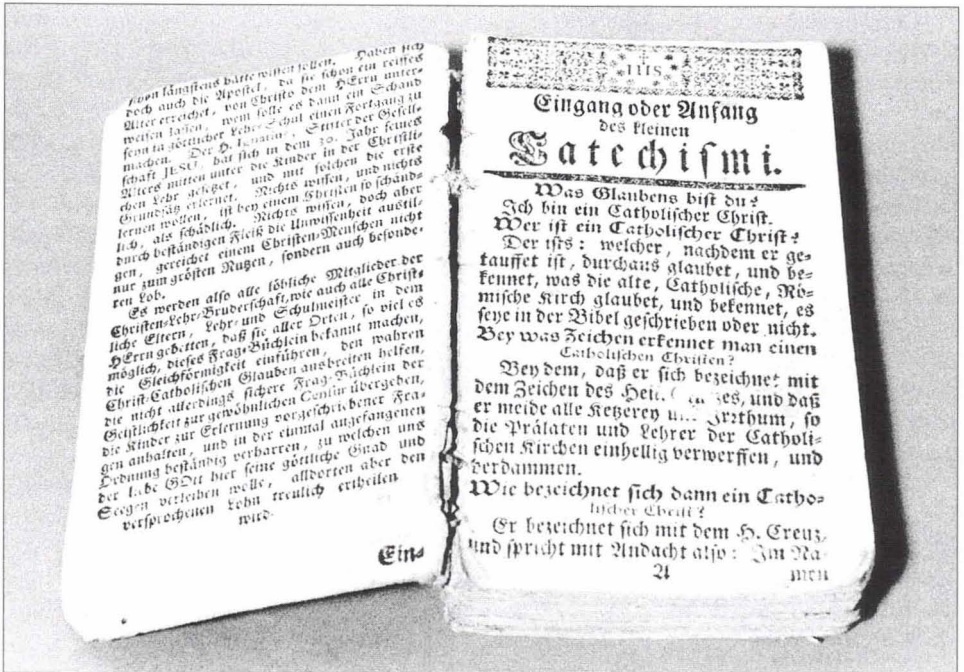 schon längstens hätte wissen sollen. Haben sich
doch auch die Apostel, da sie schon ein reiffes
Alter erreichet, von Christo dem HErrn unter-
weisen lassen, wem solle es dann ein Schand
seyn in göttlicher Lehr-Schul einen Fortgang zu
machen. Der H. Ignatius, Stifter der Gesell-
schaft JESU, hat sich in dem 30. Jahr seines
Alters mitten unter die Kinder in der Christli-
chen Lehr gesetzet, und mit solchen die erste
Grundsätz erlernet. Nichts wissen, und nichts
lernen wollen, ist bey einem Christen so schänd-
lich, als schädlich. Nichts wissen, doch aber
durch beständigen Fleiß die Unwissenheit austil-
gen, gereichet einem Christen-Menschen nicht
nur zum grösten Nutzen, sondern auch besonde-
ren Lob.
Es werden also alle löbliche Mitglieder der
Christen-Lehr-Bruderschaft, wie auch alle Christ-
liche Eltern, Lehr- und Schulmeister in dem
HErrn gebetten, daß sie aller Orten, so viel es
möglich, dieses Frag-Büchlein bekannt machen,
die Gleichförmigkeit einführen, den wahren
Christ-Catholischen Glauben ausbreiten helfen,
die nicht allerdings sichere Frag-Büchlein der
Geistlichkeit zur gewöhnlichen Censur übergeben,
die Kinder zur Erlernung vorgeschriebener Fra-
gen anhalten, und in der einmal angefangenen
Ordnung beständig verharren, zu welchen uns
der liebe GOtt hier seine göttliche Gnad und
Seegen verleihen wolle, alldorten aber den
versprochenen Lohn treulich ertheilen
wird.
Ein-
IHS
Eingang oder Anfang
des kleinen
Catechismi.
Was Glaubens bist du?
Ich bin ein Catholischer Christ.
Wer ist ein Catholischer Christ?
Der ists: welcher, nachdem er ge-
tauffet ist, durchaus glaubet, und be-
kennet, was die alte, Catholische, Rö-
mische Kirch glaubet, und bekennet, es
seye in der Bibel geschrieben oder nicht.
Bey was Zeichen erkennet man einen
Catholischen Christen?
Bey dem, daß er sich bezeichnet mit
dem Zeichen des Heil. und daß
er meide alle Ketzerey Irrthum, so
die Prälaten und Lehrer der Catholi-
schen Kirchen einhellig verwerffen, und
verdammen.
Wie bezeichnet sich dann ein Catho-
lischer Christ?
Er bezeichnet sich mit dem H. Creuz,
und spricht mit Andacht also: Im Na-
A men